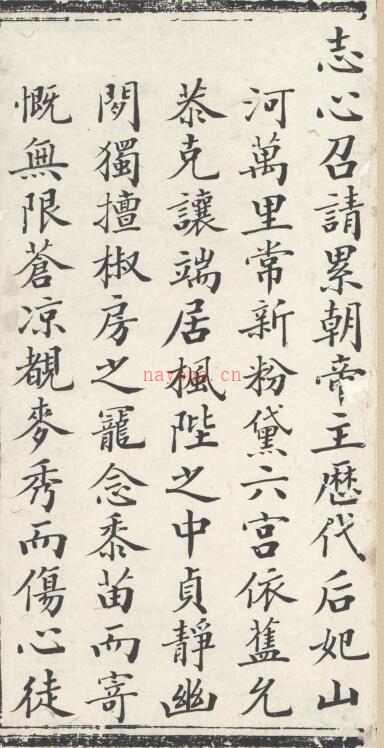 志心召請累朝帝主歷代后妃山
河萬里常新粉黛六宮依舊允
恭克讓端居楓陛之中貞靜幽
閒獨擅椒房之寵念黍苗而寄
慨無限蒼凉覩麥秀而傷心徒
nayona.cn